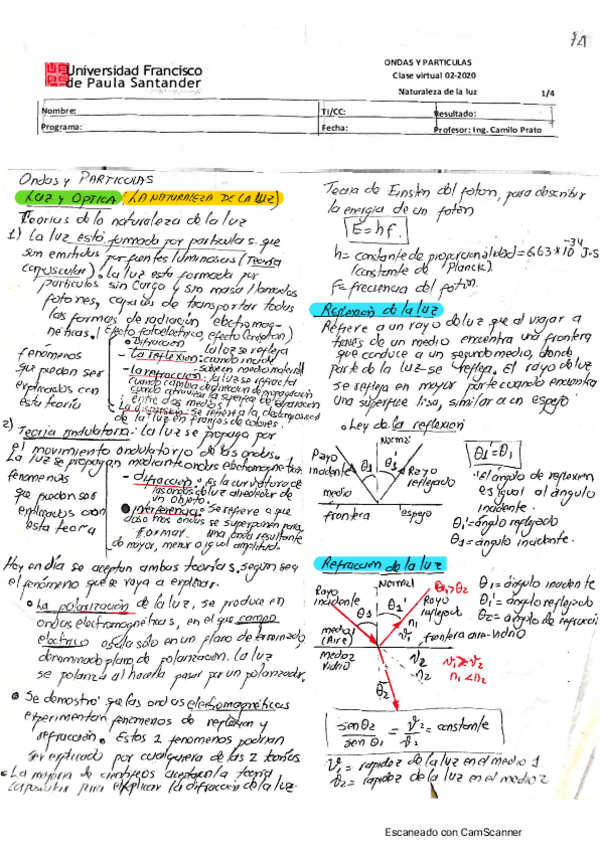 14
Universidad Francisco
de Paula Santander
ONDAS Y PARTICULAS
Clase virtual 02-2020
Naturaleza de la luz
1/4
Nombre:
TI/CC:
Resultado:
Programa:
Fecha:
Profesor: Ing. Camilo Prato
Ondas y PARTICULAS
LUZ y OPTICA (LA NATURALEZA DE LA LUZ)
Teorias de la naturaleza de la luz
1) La luz está formada por particulas. que
son emitidas por fuentes luminosas (Teoria
corpuscular). la luz esta formada por
particulas sin carga y sin masa llamadas
fotones, capaces de transportar todas
las formas de radiación electromag-
neticas. (Efecto fotoelectrico, efecto Compton)
fenómenos
que puedan ser
explicados con
esta teoría
Difraccion
- La reflexion: la luz se refleja
cuando incide
sobre un medio material
- La refracción: la luz se refracta
cuando cambia de dirección de propagación
cuando atraviesa la superficie de separación
entre dos medios
- La dispersión: se refiere a la
de la luz en franjas de colores.
2) Teoria ondulatoria: La luz se propaga por
el movimiento ondulatorio de las ondas.
La luz se propagan mediante ondas electromagneticas
fenomenos
que puedan ser
explicados con
esta teoría
- Difracción: Es la curvatura de
las ondas de luz alrededor de
un objeto.
Interferencia: Se refiere a que
dos o mas ondas se superponen para
formar una onda resultante
de mayor, menor o igual amplitud.
Hoy en día se aceptan ambas teorías, según sea
el fenómeno que se vaya a explicar.
• La polarización de la luz, se produce en
ondas electromagnéticas, en el que campo
electrico oscila sólo en un plano determinado,
denominado plano de polarización. La luz
se polariza al hacerla pasar por un polarizador.
• Se demostró que las ondas eletromagnéticas
experimentan fenomenos de reflexion y
refracción. Estos 2 fenomenos podrian
ser explicado por cualquiera de las 2 teorías
• La mayoria de cientificos aceptan la teoria
corpuscular para explicar la difracción de la luz.
Teoria de Einsten del foton, para describir
la energia de un foton
E = hf.
h = constante de proporcionalidad = 6,63 * 10⁻³⁴ J·s
(constante de Planck).
f = frecuencia del fotón.
Reflexión de la luz
Refiere a un rayo de luz que al viajar a
través de un medio encuentra una frontera
que conduce a un segundo medio, donde
parte de la luz se refleja. El rayo de luz
se refleja en mayor parte cuando encuentra
una superficie lisa, similar a un espejo
• Ley de la reflexion
Normal
Rayo
incidente
θ1
θ1'
Rayo
reflejado
medio
frontera
espejo
θ1' = θ1
El ángulo de reflexion
es igual al ángulo
incidente.
θ1' = ángulo reflejado
θ1 = ángulo incidente.
Refracción de la luz
Normal
Rayo
incidente
θ1
θ1'
θ1 > θ2
Rayo
reflejado
medio1
(Aire)
n1
v1
frontera aire-vidrio
medio2
vidrio
v2
n2
v1 > v2
n1 < n2
θ2
θ1 = ángulo incidente
θ1' = ángulo reflejado
θ2 = ángulo de refracción
sen θ2 / sen θ1 = v2 / v1 = constante
v1 = rapidez de la luz en el medio 1
v2 = rapidez de la luz en el medio 2
Escaneado con CamScanner